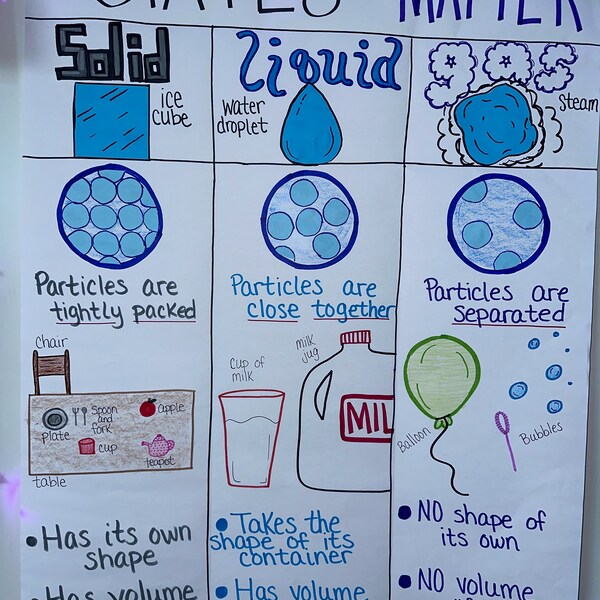 STATES MATTER
Solid
ice
cube
Liquid
Water
droplet
gas
Steam
Particles are
tightly packed
Particles are
close together
Particles are
separated
chair
plate
Spoon
and
fork
apple
cup
teapot
table
cup of
milk
milk
jug
MIL
Balloon
Bubbles
• Has its own
shape
• Has volume
• Takes the
shape of its
container
• Has volume
• NO shape of
its own
• NO volume